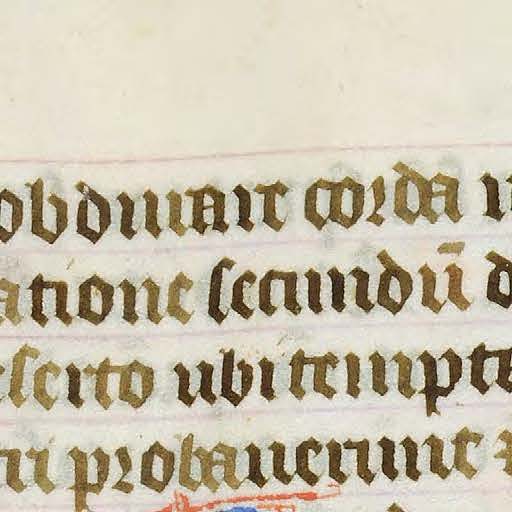 obdurare corda u
atione secundū d
eserto ubi tempta
tri probauerunt